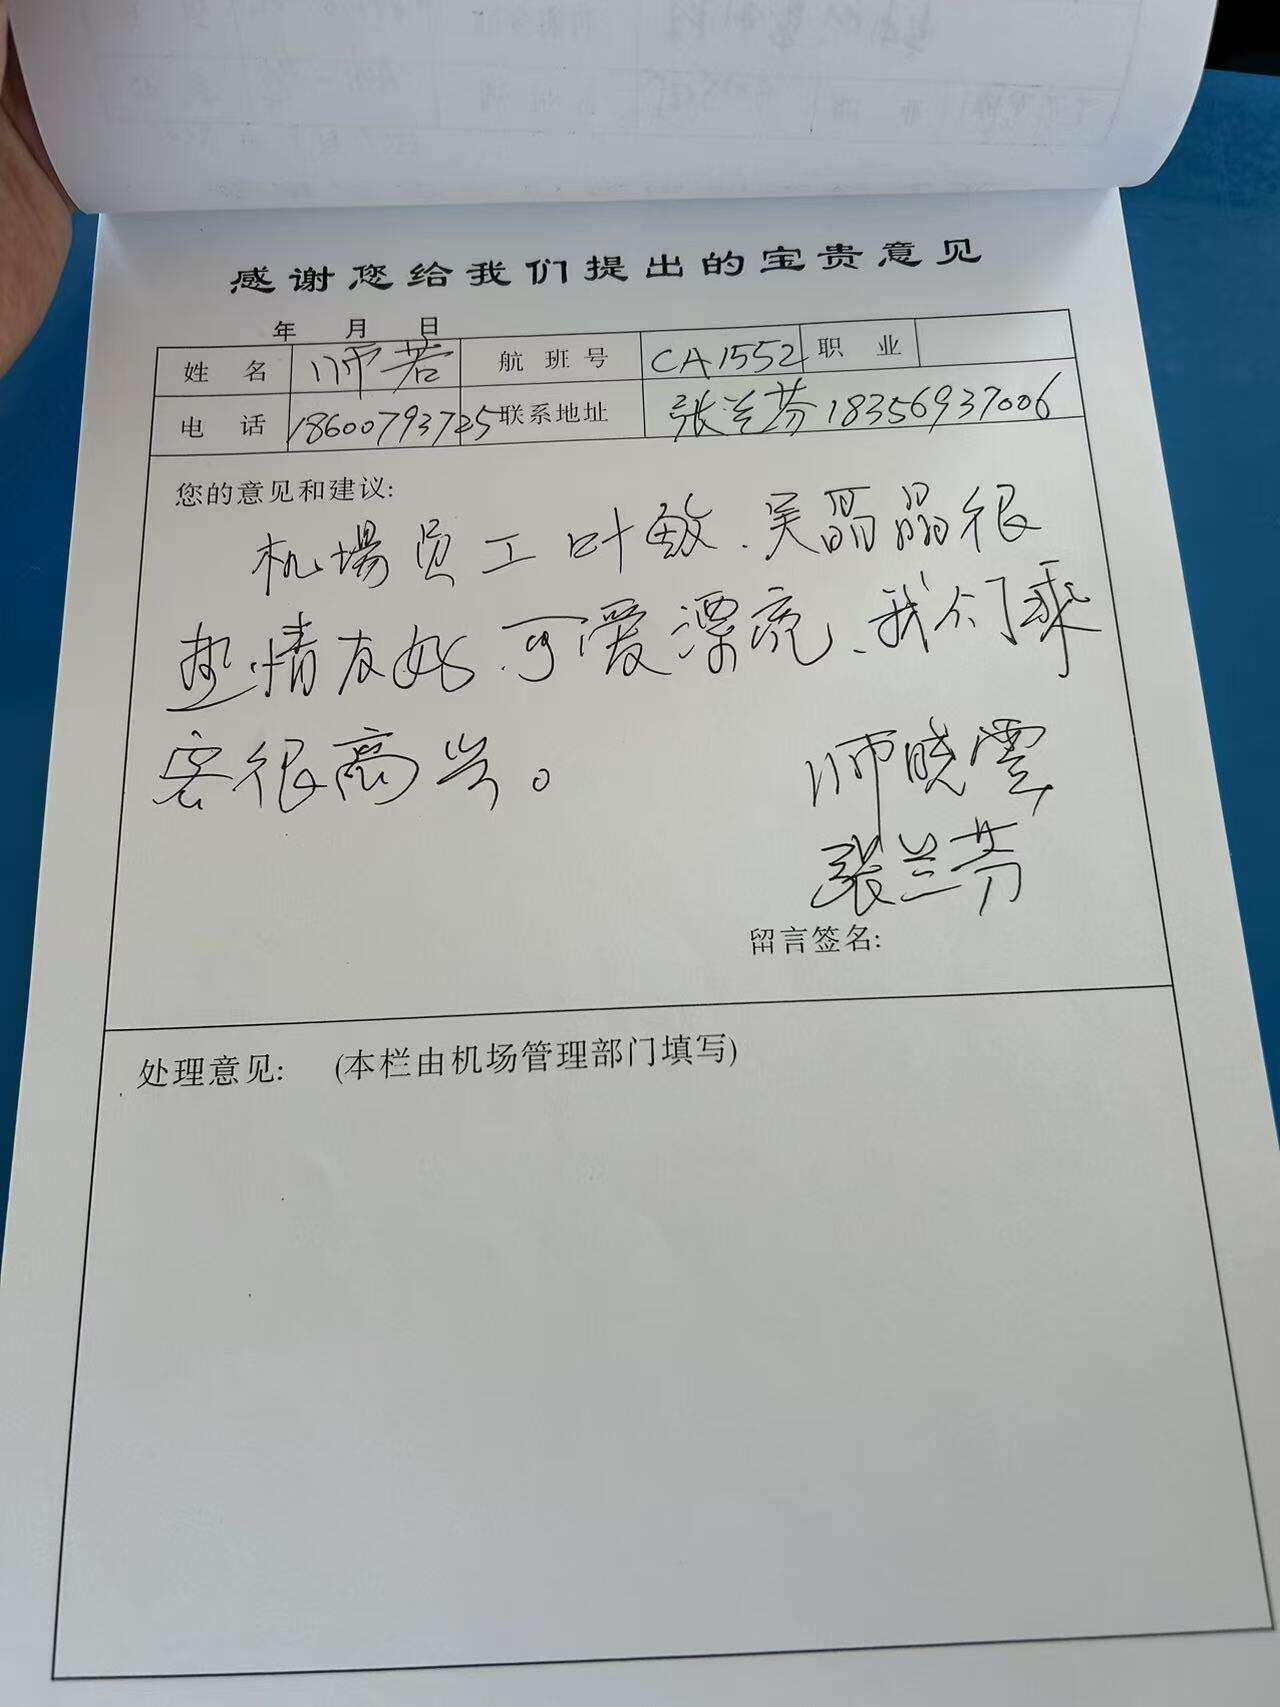 感谢您给我们提出的宝贵意见
年 月 日
姓 名 师若 航 班 号 CA1552 职 业
电 话 18600793725 联系地址 张兰芬 18356937006
您的意见和建议:
机場员工叶敏、吴晶晶很
热情友好、可爱漂亮、我们乘
客很高兴。
师晓雲
张兰芬
留言签名:
处理意见: (本栏由机场管理部门填写)